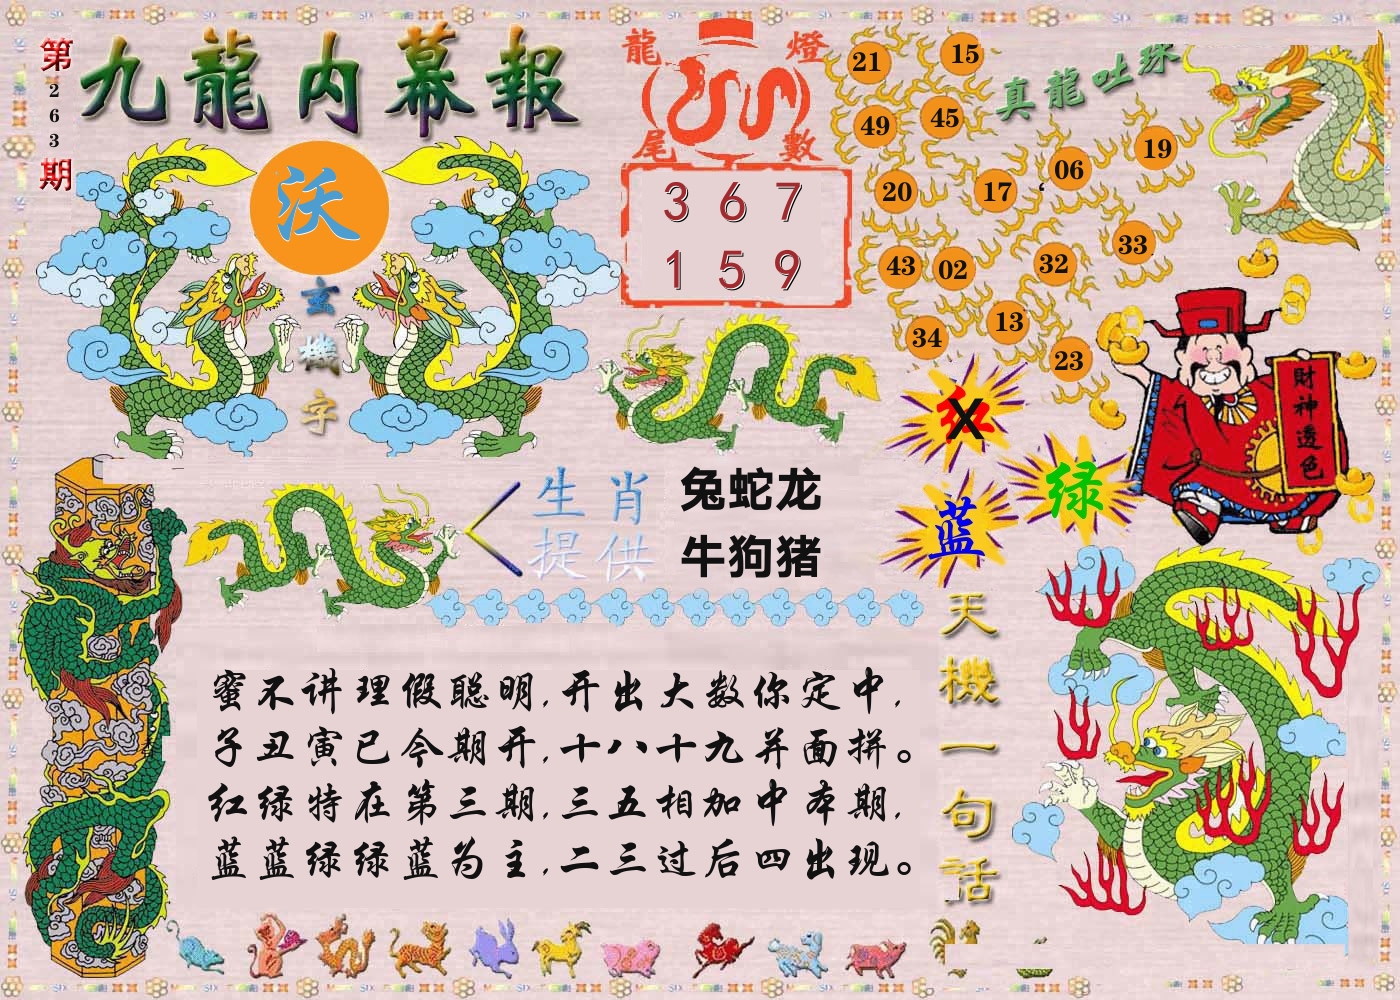 第263期
九龍内幕報
沃
玄機字
龍燈
尾數
3 6 7
1 5 9
真龍吐珠
21 15
49 45
20 17 06 19
43 02 32 33
34 13 23
財神透色
红
X
绿
蓝
生肖
提供
兔蛇龙
牛狗猪
天機一句話
蜜不讲理假聪明,开出大数你定中,
子丑寅已今期开,十八十九并面拼。
红绿特在第三期,三五相加中本期,
蓝蓝绿绿蓝为主,二三过后四出现。